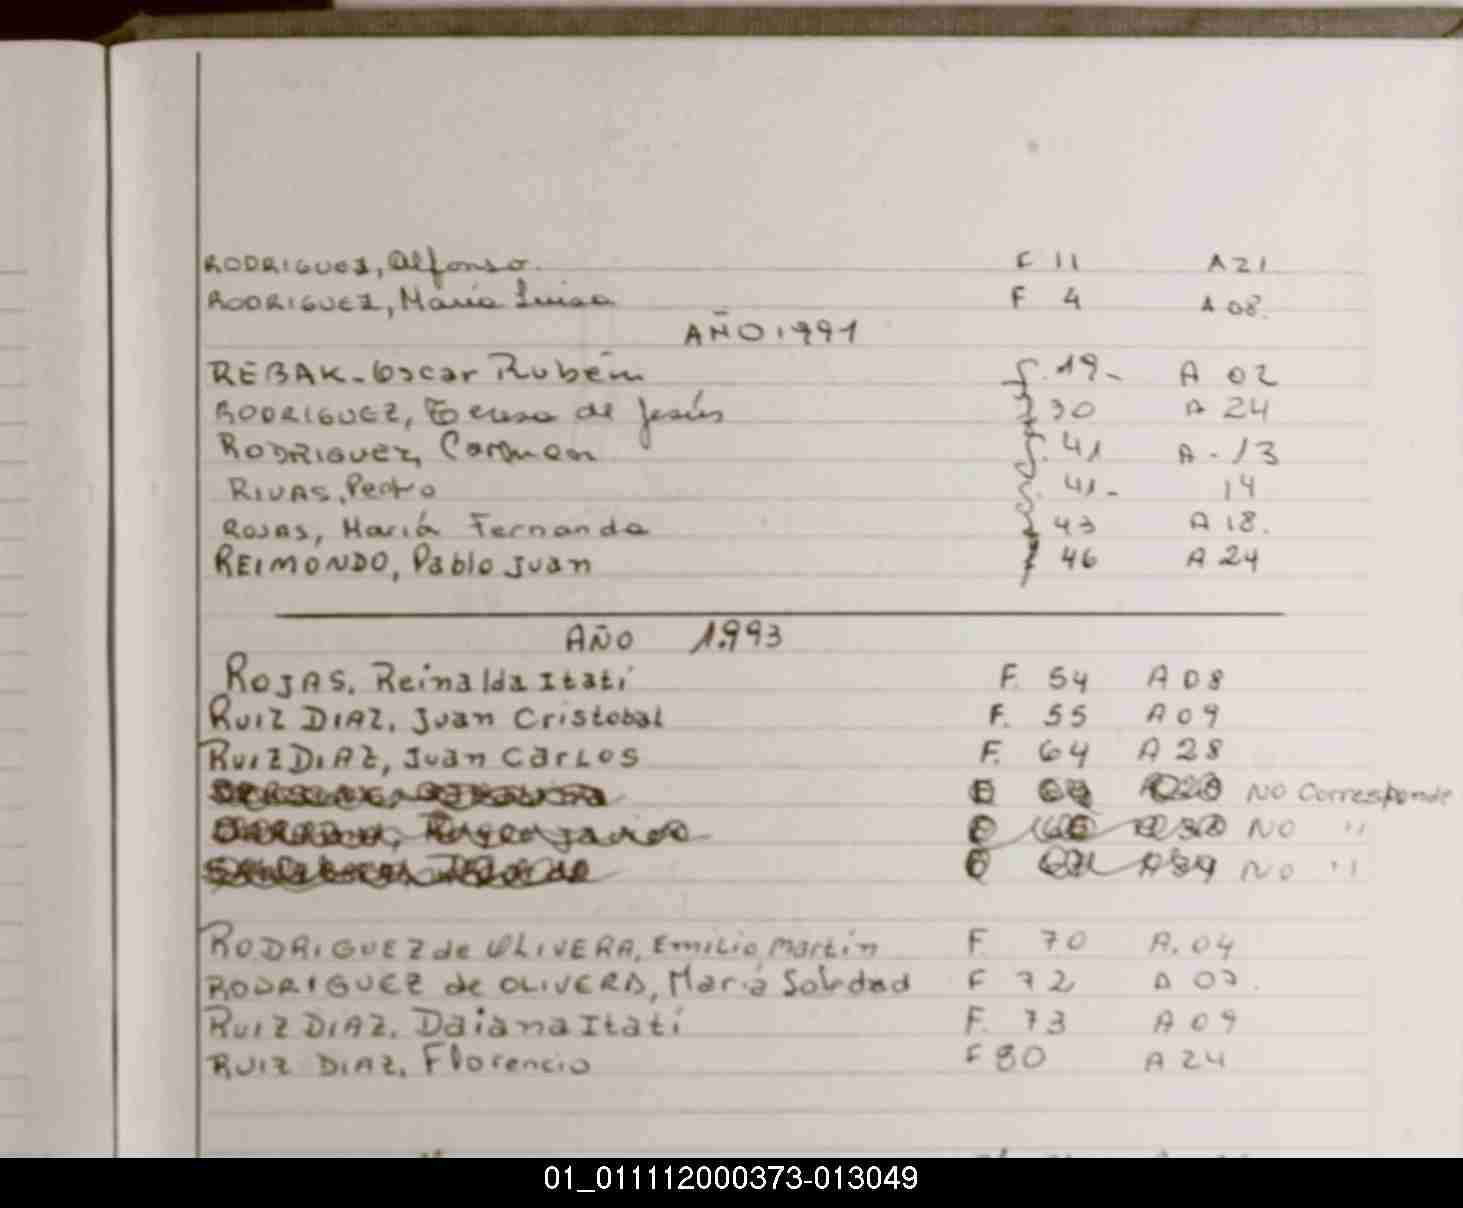 RODRIGUEZ, Alfonso. F 11 A 21
RODRIGUEZ, María Luisa F 4 A 08.
AÑO 1991
REBAK - Oscar Rubém f. 19- A 02
RODRIGUEZ, Teresa de Jesús f 30 A 24
RODRIGUEZ, Carmen f. 41 A - 13
RIVAS, Pedro f. 41- 14
ROJAS, María Fernanda f 43 A 18.
REIMONDO, Pablo Juan f 46 A 24
AÑO 1.993
ROJAS, Reinalda Itatí F. 54 A 08
RUIZ DIAZ, Juan Cristobal F. 55 A 09
RUIZ DIAZ, Juan CarLos F. 64 A 28
NO Corresponde
NO "
NO "
RODRIGUEZ de OLIVERA, Emilio Martín F. 70 A. 04
RODRIGUEZ de OLIVERA, María Soledad F 72 A 07.
RUIZ DIAZ, Daiana Itatí F. 73 A 09
RUIZ DIAZ, Florencio F 80 A 24
01_011112000373-013049